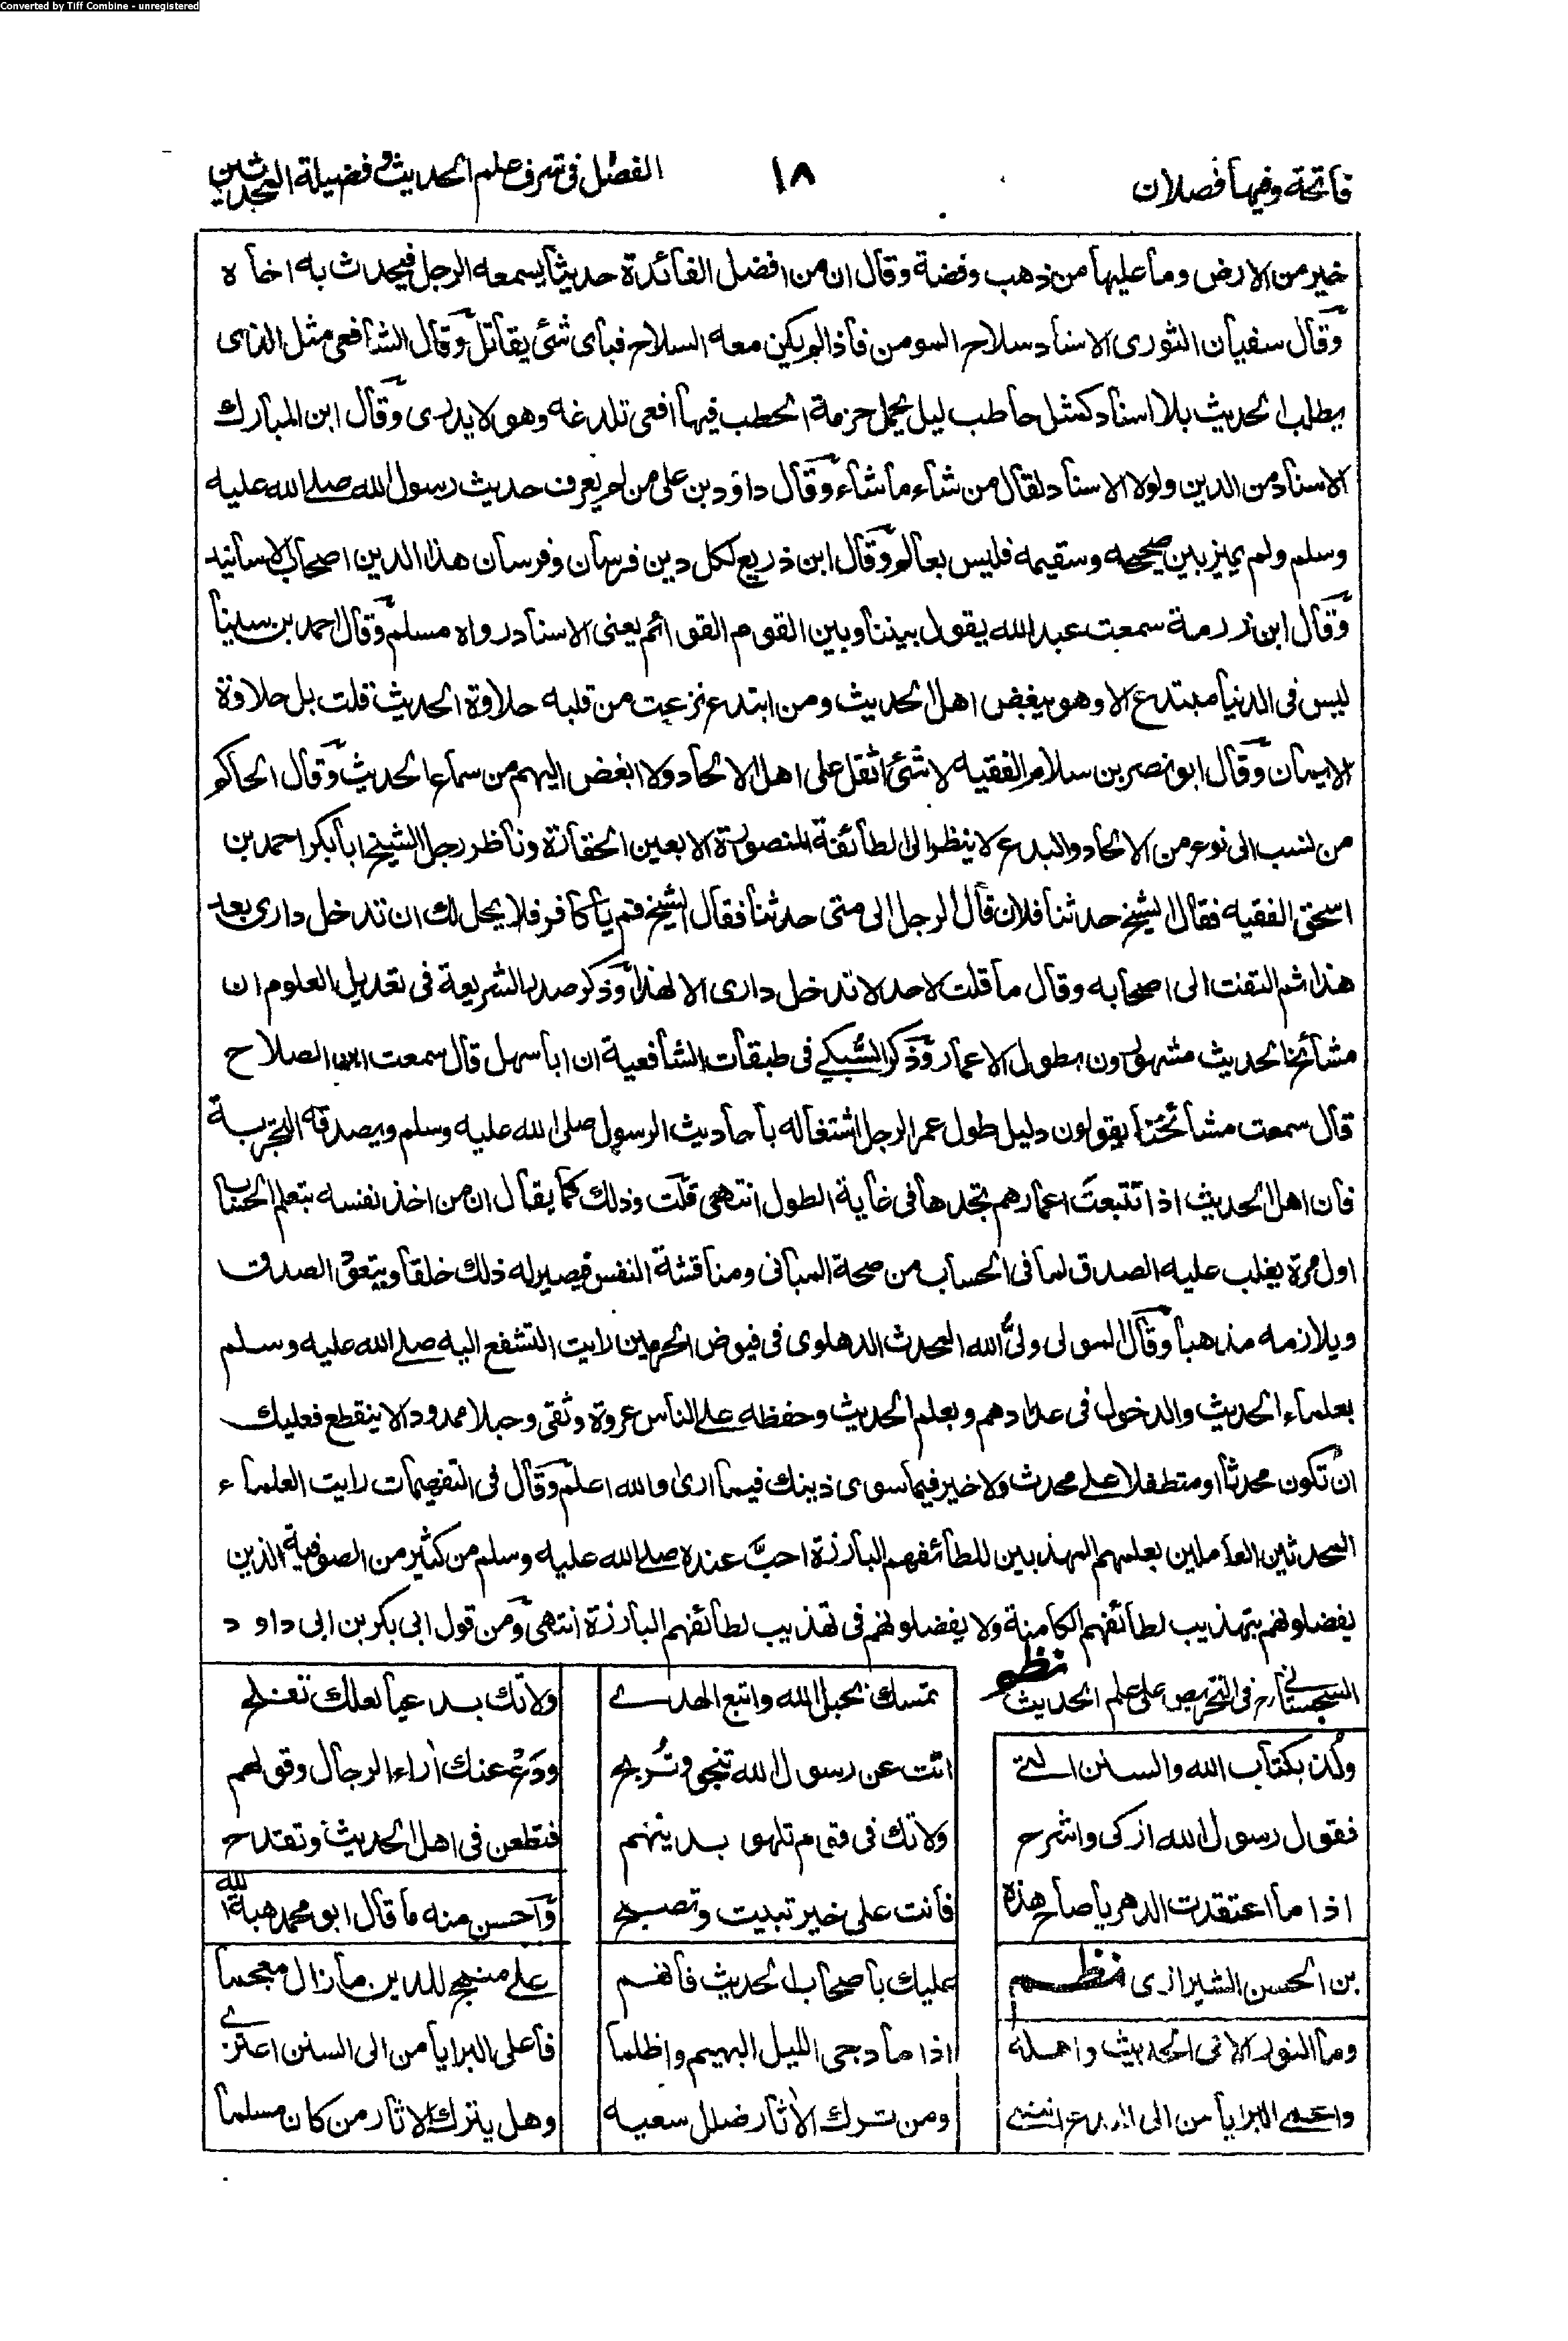 Converted by Tiff Combine - unregistered
فاتحة وفيها فصلان
١٨
الفصل في شرف علم الحديث وفضيلة المحدثين
خير من الارض وما عليها من ذهب وفضة وقال ان من افضل الفائدة حديثا يسمعه الرجل فيحدث به اخاه
وقال سفيان الثوري الاسناد سلاح المومن فاذا لم يكن معه السلاح فباى شئ يقاتل وقال الشافعي مثل الذى
يطلب الحديث بلا اسناد كمثل حاطب ليل يحمل حزمة الحطب فيها افعى تلدغه وهو لا يدرى وقال ابن المبارك
الاسناد من الدين ولولا الاسناد لقال من شاء ما شاء وقال داؤد بن على من لم يعرف حديث رسول الله صلے الله عليه
وسلم ولم يميز بين صحيحه وسقيمه فليس بعالم وقال ابن ذريع لكل دين فرسان وفرسان هذا الدين اصحاب الاسانيد
وقال ابن زرمة سمعت عبد الله يقول بيننا وبين القوم القوائم يعنى الاسناد رواه مسلم وقال احمد بن سنينا
ليس فى الدنيا مبتدع الا وهو يبغض اهل الحديث ومن ابتدع نزعت من قلبه حلاوة الحديث قلت بل حلاوة
الايمان وقال ابو نصر بن سلام الفقيه لا شئ اثقل على اهل الالحاد ولا ابغض اليهم من سماع الحديث وقال الحاكم
من نسب الى نوع من الالحاد والبدع لا ينظر الى الطائفة المنصورة الا بعين الحقارة وناظر رجل الشيخ ابا بكر احمد بن
اسحق الفقيه فقال الشيخ حدثنا فلان قال الرجل الى متى حدثنا فقال الشيخ قم يا كافر فلا يحل لك ان تدخل دارى بعد
هذا ثم التفت الى اصحابه وقال ما قلت لاحد لا تدخل دارى الا لهذا وذكر صدر الشريعة فى تعديل العلوم ان
مشائخ الحديث مشهورون بطول الاعمار وذكر السبكي فى طبقات الشافعية ان ابا سهل قال سمعت ابن الصلاح
قال سمعت مشائخنا يقولون دليل طول عمر الرجل اشتغاله باحاديث الرسول صلى الله عليه وسلم ويصدقه التجربة
فان اهل الحديث اذا تتبعت اعمارهم تجدها فى غاية الطول انتهى قلت وذلك كما يقال ان من اخذ نفسه بتعلم الحساب
اول مرة يغلب عليه الصدق لما فى الحساب من صحة المبانى ومناقشة النفس فيصير له ذلك خلقا ويتعود الصدق
ويلازمه مذهبا وقال المولى ولى الله المحدث الدهلوى فى فيوض الحرمين رايت التشفع اليه صلے الله عليه وسلم
بعلماء الحديث والدخول فى عدادهم وبعلم الحديث وحفظه على الناس عروة وثقى وحبلا ممدودا لا ينقطع فعليك
ان تكون محدثا او متطفلا على محدث ولا خير فيما سوى ذينك فيما ارى والله اعلم وقال فى التفهيمات رايت العلماء
المحدثين العاملين بعلمهم المهذبين للطائفهم البارزة احب عنده صلے الله عليه وسلم من كثير من الصوفية الذين
يفضلونهم بتهذيب لطائفهم الكامنة ولا يفضلونهم فى تهذيب لطائفهم البارزة انتهى ومن قول ابى بكر بن ابى داود
السجستانى رح فى التحريص على علم الحديث نظم
تمسك بحبل الله واتبع الهدے
ولاتك بدعيا لعلك تفلح
ولذ بكتاب الله والسنن التے
اتت عن رسول الله تنجى وتربح
ودع عنك اراء الرجال وقولهم
فقول رسول الله ازكى واشرح
ولاتك فى قوم تلهو بدينهم
فتطعن فى اهل الحديث وتقدح
اذا ما اعتقدت الدهر يا صاح هذه
فانت على خير تبيت وتصبح
واحسن منه ما قال ابو محمد هبة الله
بن الحسن الشيرازى نظم
عليك باصحاب الحديث فانهم
علے منهج للدين ما زال معجما
وما النور الا فى الحديث واهله
اذا ما دجى الليل البهيم واظلما
فاعلى البرايا من الى السنن اعتزے
واعمى البرايا من الى البدع انتمى
ومن ترك الاثار ضلل سعيه
وهل يترك الاثار من كان مسلما